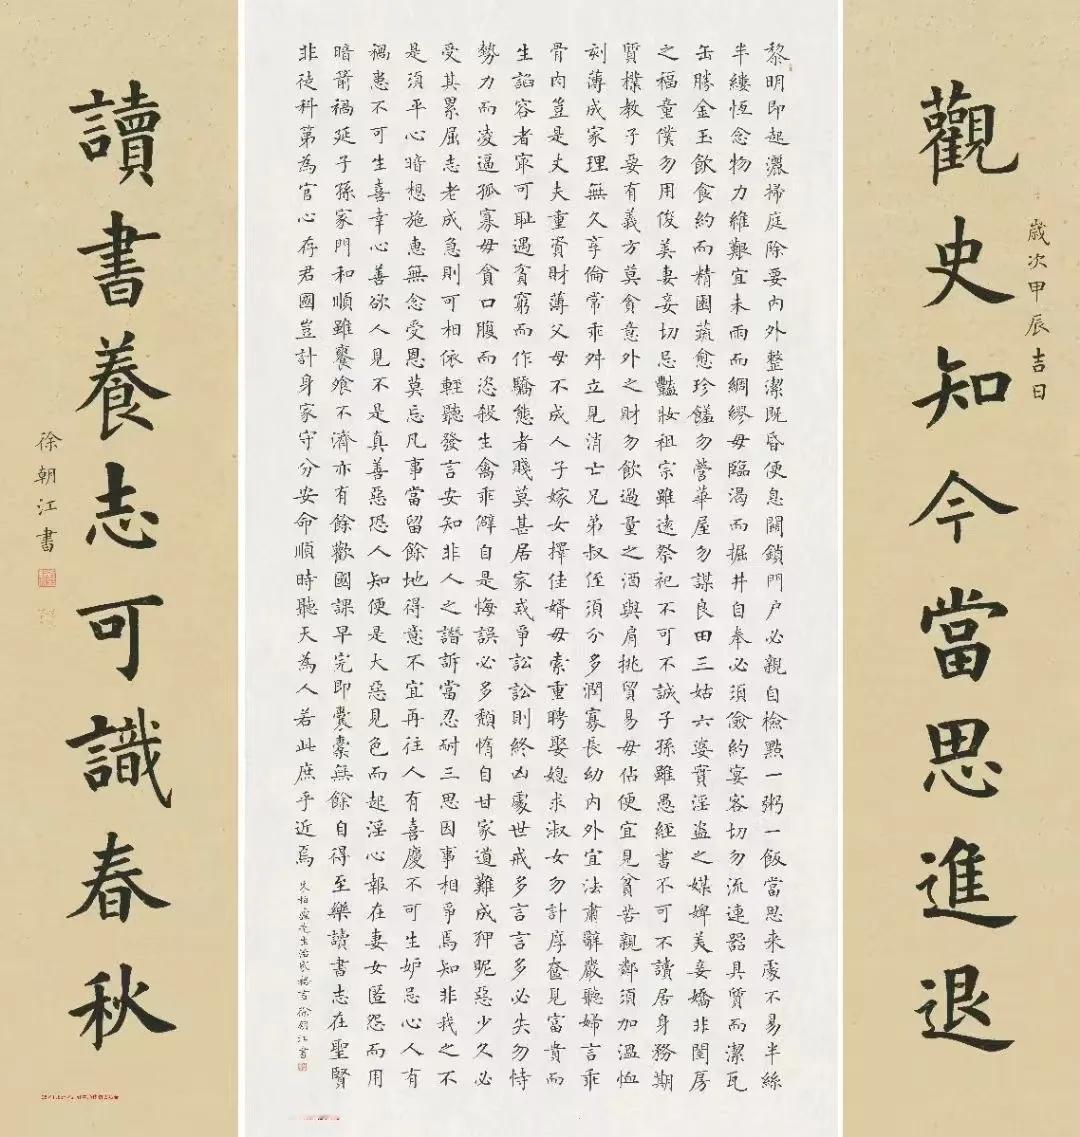 觀史知今當思進退
歲次甲辰吉日
黎明即起灑掃庭除要內外整潔既昏便息關鎖門戶必親自檢點一粥一飯當思來處不易半絲
半縷恆念物力維艱宜未雨而綢繆毋臨渴而掘井自奉必須儉約宴客切勿流連器具質而潔瓦
缶勝金玉飲食約而精園蔬愈珍饈勿營華屋勿謀良田三姑六婆實淫盜之媒婢美妾嬌非閨房
之福童僕勿用俊美妻妾切忌豔妝祖宗雖遠祭祀不可不誠子孫雖愚經書不可不讀居身務期
質樸教子要有義方莫貪意外之財勿飲過量之酒與肩挑貿易毋佔便宜見貧苦親鄰須加溫恤
刻薄成家理無久享倫常乖舛立見消亡兄弟叔侄須分多潤寡長幼內外宜法肅辭嚴聽婦言乖
骨肉豈是丈夫重資財薄父母不成人子嫁女擇佳婿毋索重聘娶媳求淑女勿計厚奩見富貴而
生諂容者最可恥遇貧窮而作驕態者賤莫甚居家戒爭訟訟則終凶處世戒多言言多必失勿恃
勢力而凌逼孤寡毋貪口腹而恣殺生禽乖僻自是悔誤必多頹惰自甘家道難成狎昵惡少久必
受其累屈志老成急則可相依輕聽發言安知非人之譖訴當忍耐三思因事相爭焉知非我之不
是須平心暗想施惠無念受恩莫忘凡事當留餘地得意不宜再往人有喜慶不可生妒忌心人有
禍患不可生喜幸心善欲人見不是真善惡恐人知便是大惡見色而起淫心報在妻女匿怨而用
暗箭禍延子孫家門和順雖饔飧不濟亦有餘歡國課早完即囊橐無餘自得至樂讀書志在聖賢
非徒科第為官心存君國豈計身家守分安命順時聽天為人若此庶乎近焉 朱柏廬先生治家格言 徐朝江書
讀書養志可識春秋
徐朝江書